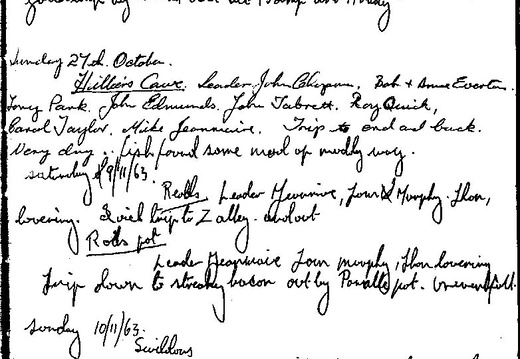 Sunday 27th. October.
Hilliers Cave. Leader John Chapman. Bob + Anne Everton.
Tony Park. John Edmunds. John Tabrett. Roy Quick,
Carol Taylor. Mike Jeanmaire. Trip to end and back.
Very dry .. Fish found some mud up muddy way.
saturday 9/11/63.
Reads Leader Jeanmaire, Joan Murphy.
lovering. Quick trip to Z alley. and out
Rods pot
Leader Jeanmaire Joan murphy, lovering
Trip down to streaky bacon out by Parallel pot. Uneventful.
Sunday 10/11/63.
Swildons